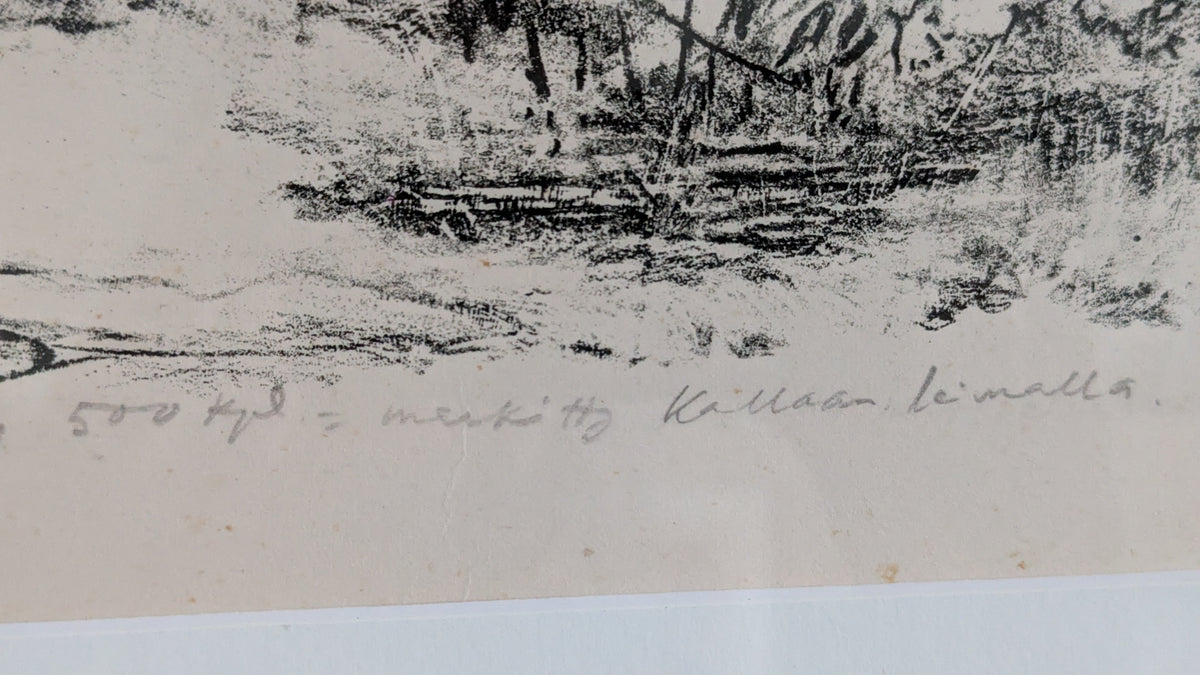 500 kpl = merkitty Kallaan leimalla.